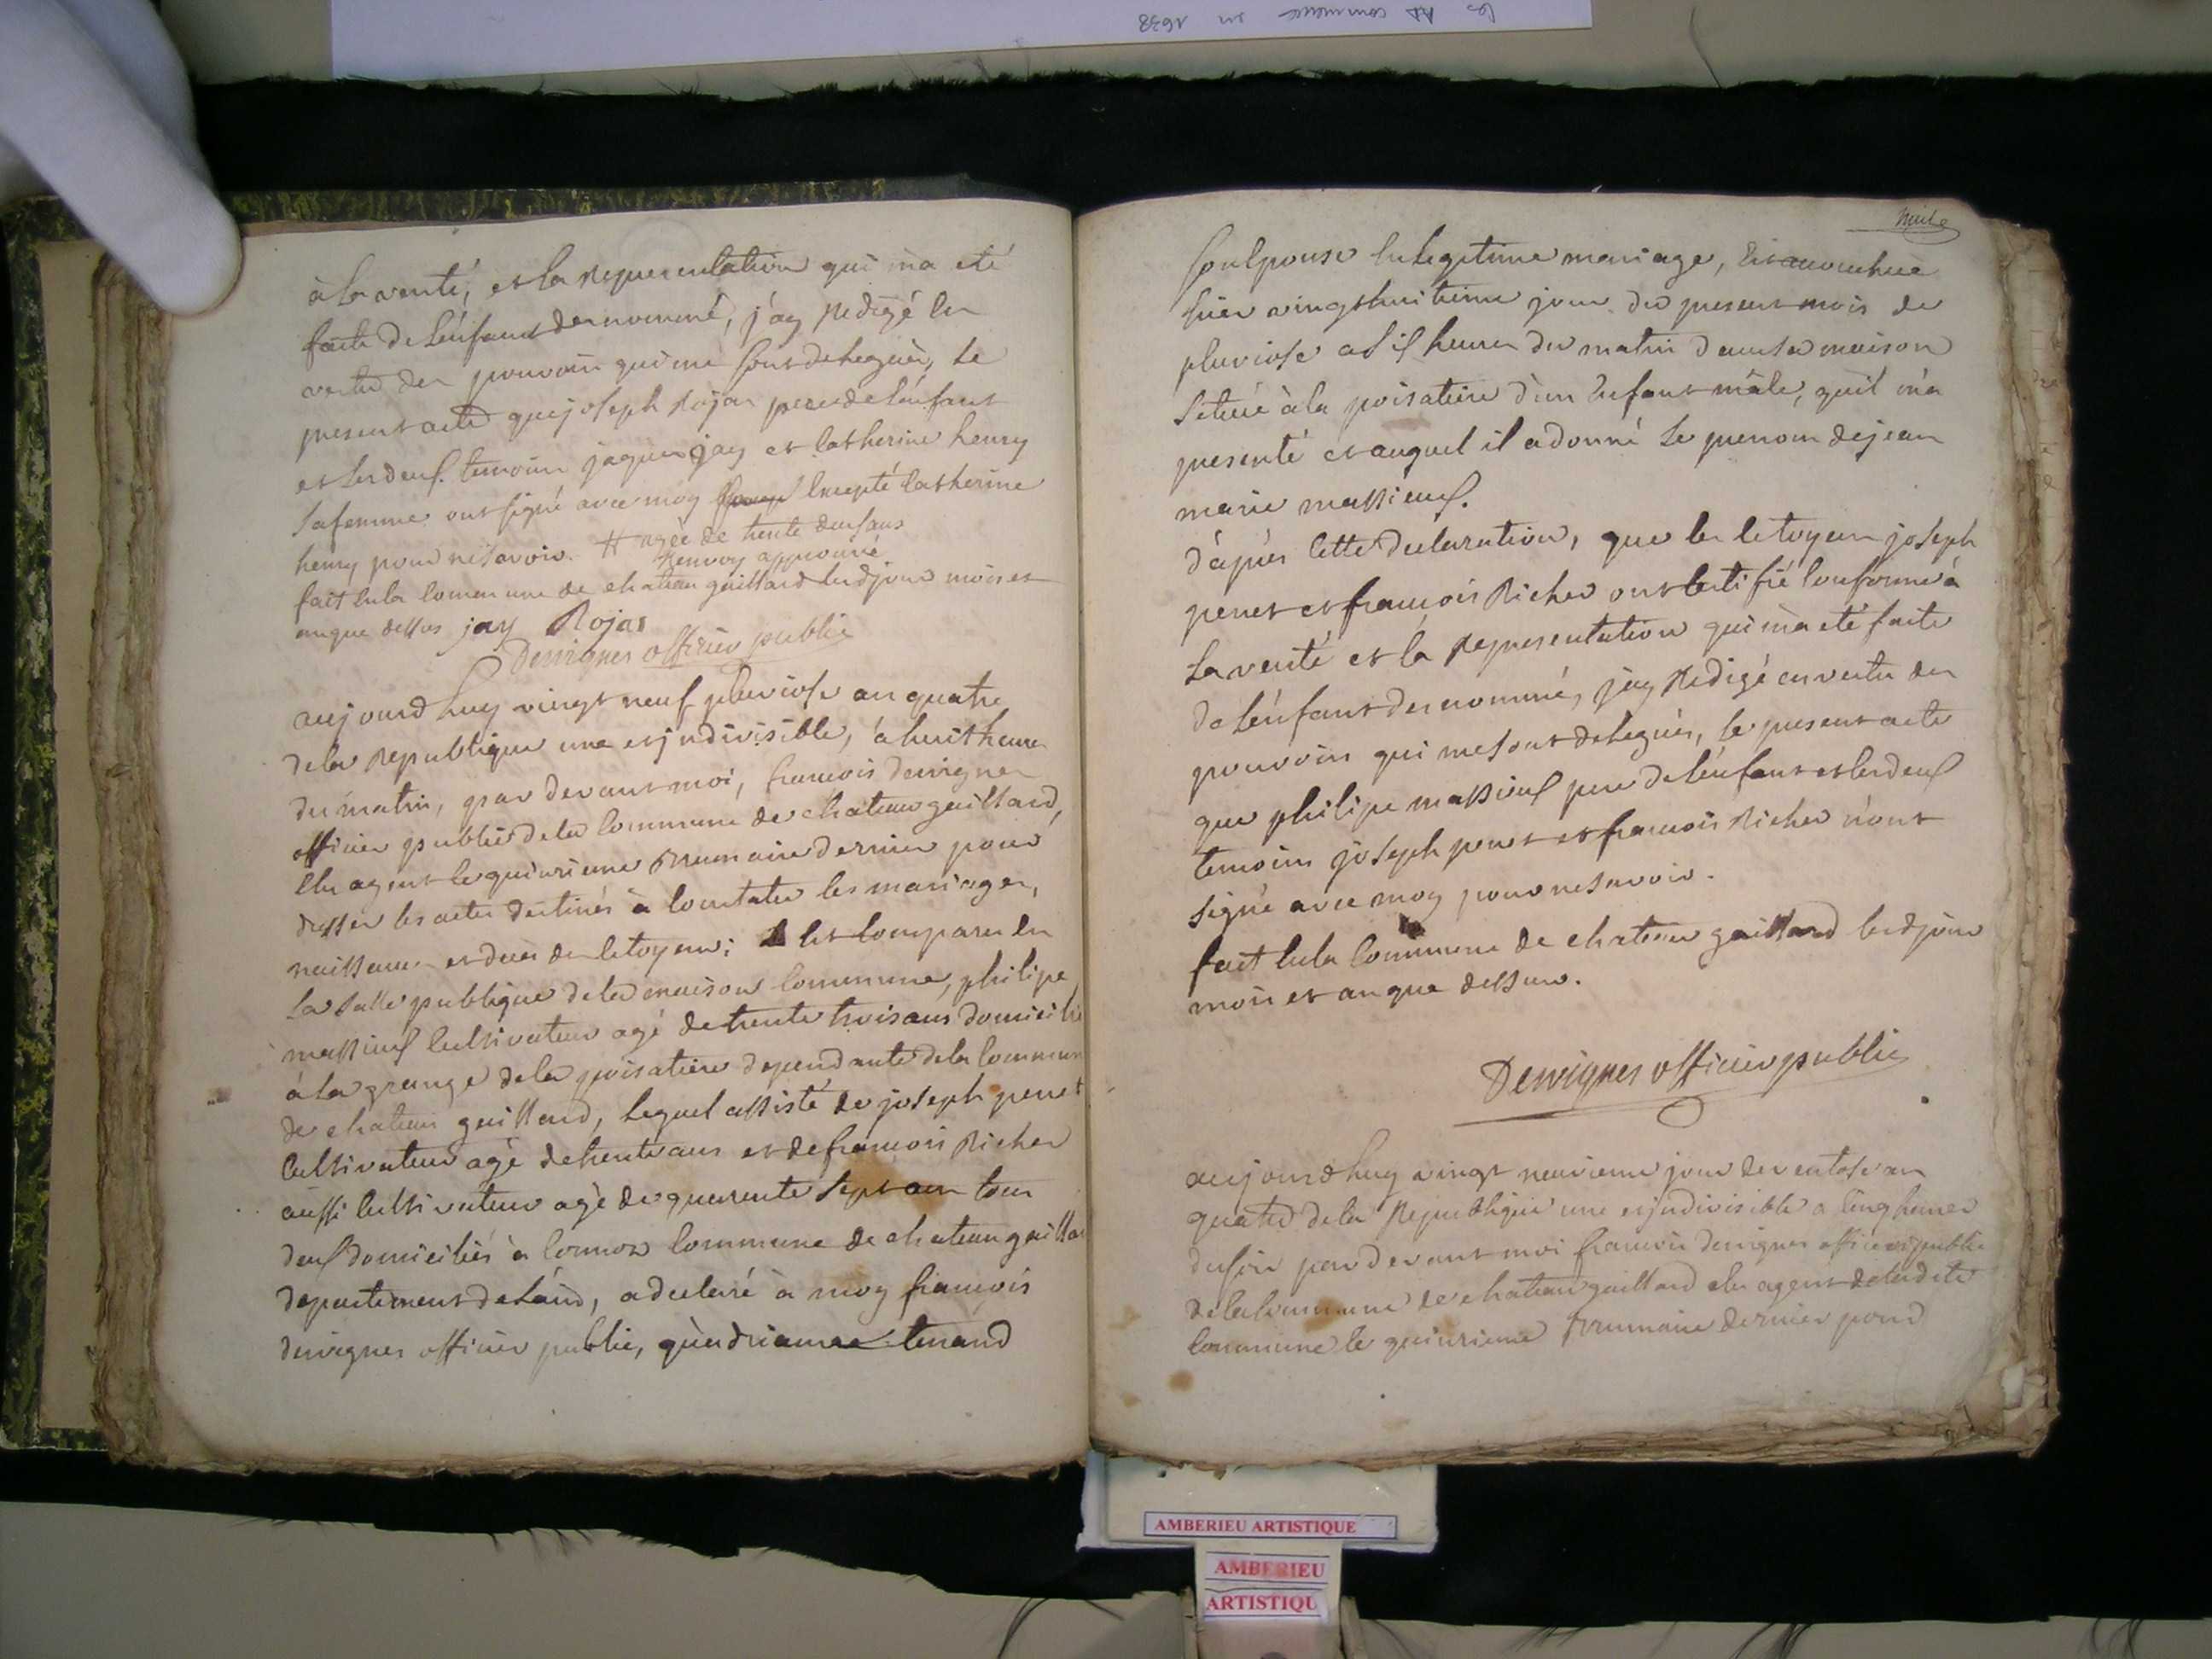 les AD commence en 1638
à la verité, et la representation qui m'a eté
faite de l'énfant denommé, j'ay redigé en
vertu des pouvoirs qui me sont delegués, le
present acte que joseph Rojas pere de l'énfant
et les deux temoins jaques jay et catherine henry
sa femme ont signé avec moy excepté catherine
henry pour ne savoir. # agée de trente deux ans
Renvoy approuvé
fait en la commune de chateau gaillard les d jour mois et
an que dessus jay Rojas
Desvignes officier public
aujourd huy vingt neuf pluviose an quatre
de la Republique une et indivisible, à huit heures
du matin, par devant moi, francois desvignes
officier public de la commune de chateau gaillard,
elu agent le quinzieme brumaire dernier pour
dresser les actes destinés à constater les mariages,
naissances et decès des citoyens; est comparu en
la salle publique de la maison commune, philipe
massieux cultivateur agé de trente trois ans domicilié
à la grange de la poisatiere dependante de la commun
de chateau gaillard, lequel assisté de joseph penet
cultivateur agé de trente ans et de francois Richer
aussi cultivateur agé de quarente sept ans tous
deux domiciliés à cormoz commune de chateau gaillar
departement de l'áin, a declaré à moy francois
desvignes officier public, qu'endrianne tenand
nuile
son epouse en legitime mariage, est accouchée
hier vingt huitieme jour du present mois de
pluviose a six heures du matin dans sa maison
située à la poisatiere d'un enfant mâle, qu'il m'a
presenté et auquel il a donné le prenom de jean
marie massieux.
d'áprès cette declaration, que les citoyens joseph
penet et francois Richer ont certifié conforme à
la verité et la representation qui m'a eté faite
de l'énfant denommé, j'ay redigé en vertu des
pouvoirs qui me sont delegués, le present acte
que philipe massieux pere de l'énfant et les deux
temoins joseph penet et francois Richer n'ont
signé avec moy pour ne savoir.
fait en la commune de chateau gaillard les d jour
mois et an que dessus.
Desvignes officier public
aujourd huy vingt neuvieme jour de ventose an
quatre de la Republique une et indivisible a cinq heures
du soir par devant moi francois desvignes officier public
de la commune de chateau gaillard elu agent de la dite
commune le quinzieme brumaire dernier pour
AMBERIEU ARTISTIQUE
AMBERIEU
ARTISTIQU